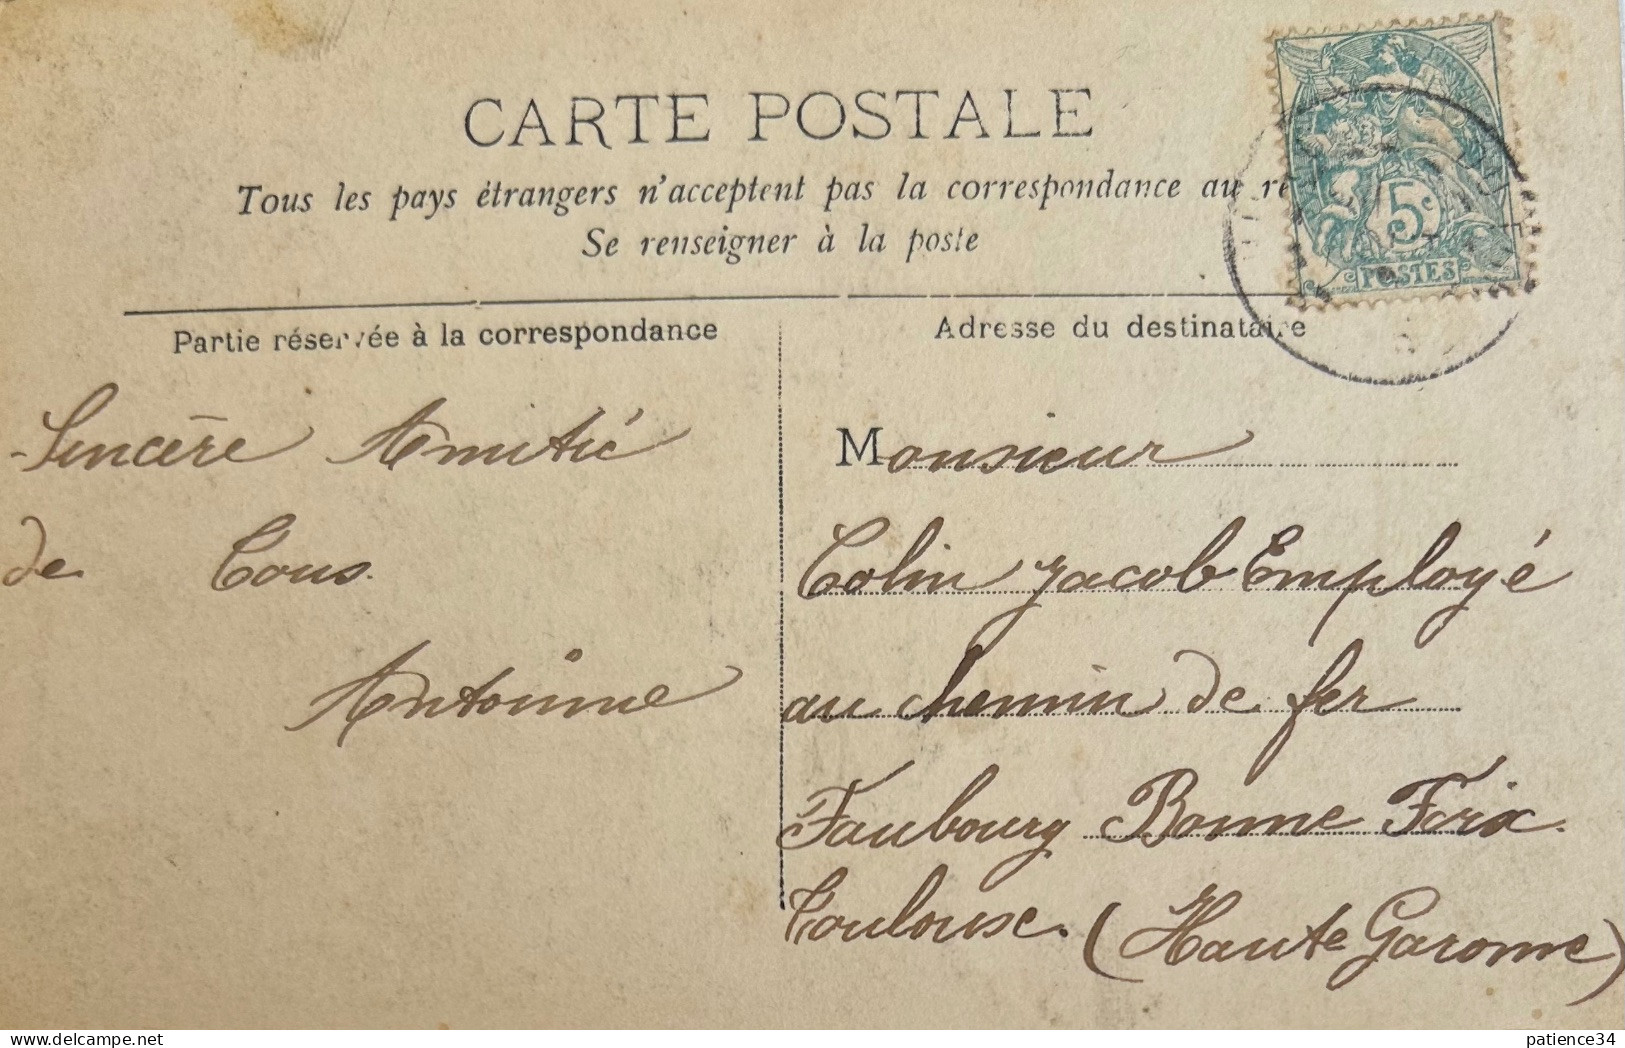 CARTE POSTALE
Tous les pays étrangers n'acceptent pas la correspondance au
Se renseigner à la poste
5c
POSTES
Partie réservée à la correspondance
Sincère Amitié
de Tous.
Antoinne
Adresse du destinataire
Monsieur
Colin Jacob Employé
au chemin de fer
Faubourg Bonne Foix
Toulouse. (Haute Garonne)
patience34